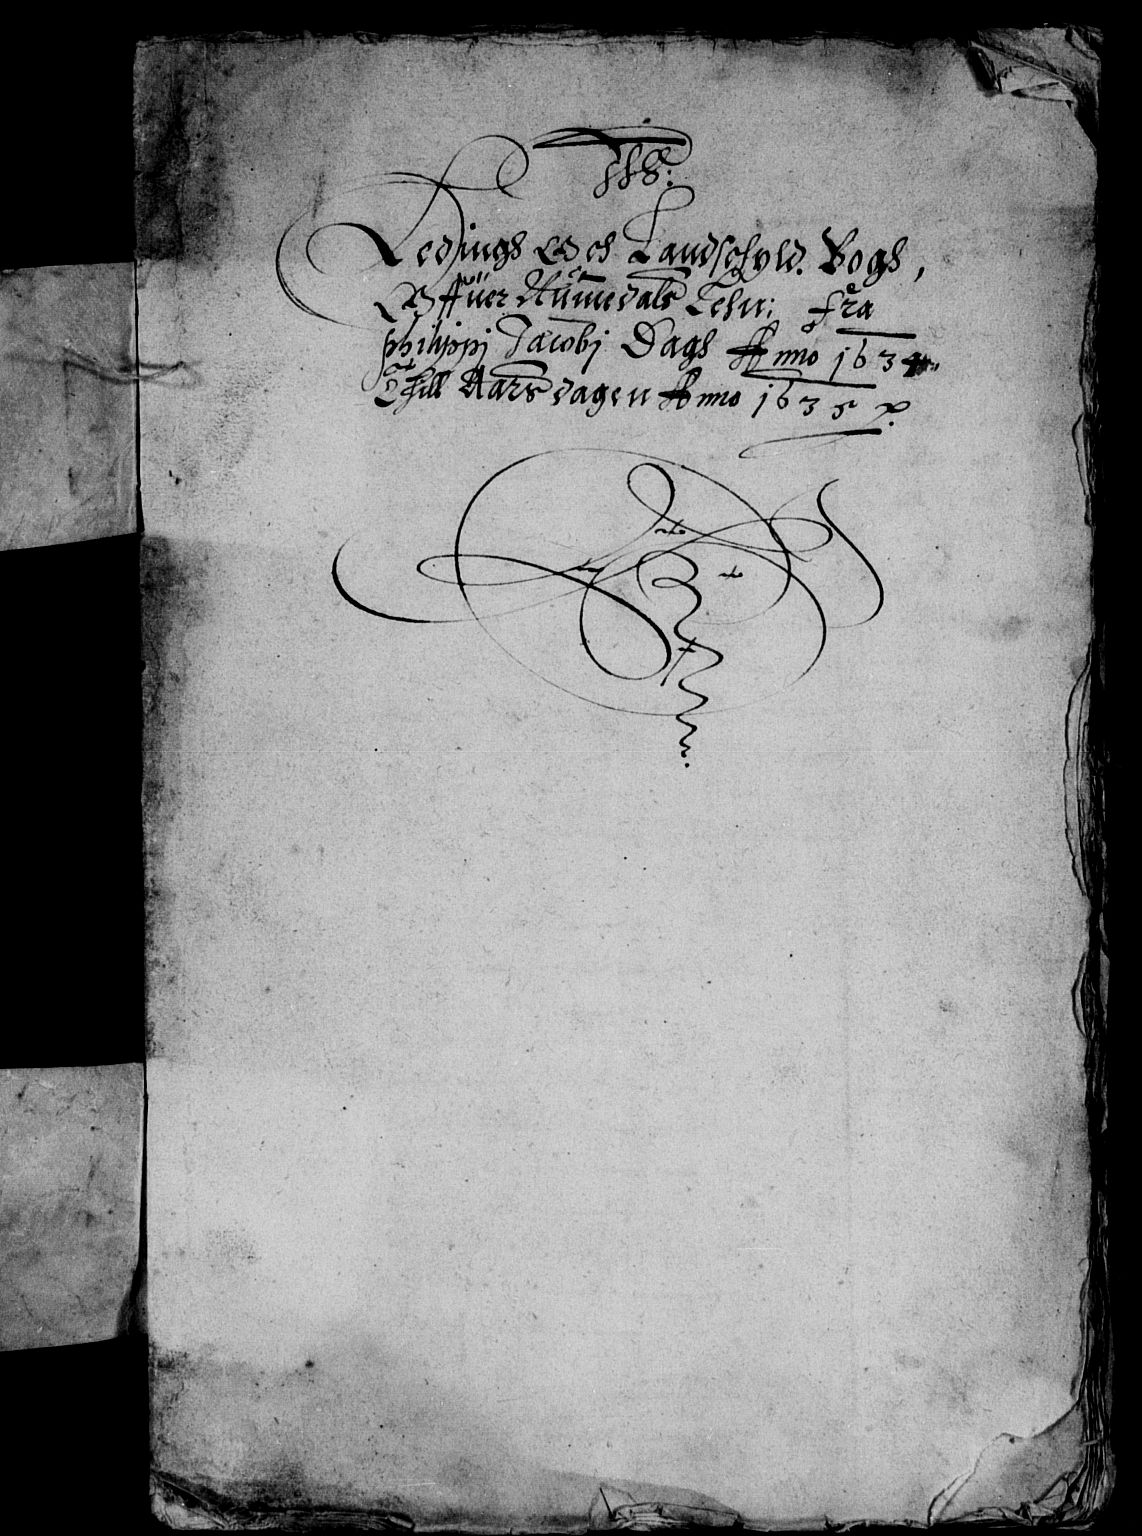 JHS:
Ledings Och Landschyld. Bogh,
Offuer Nummedals Lehn: fra
Philippj Jacobj Dagh Anno 1634
Thill Aarsdagen Anno 1635